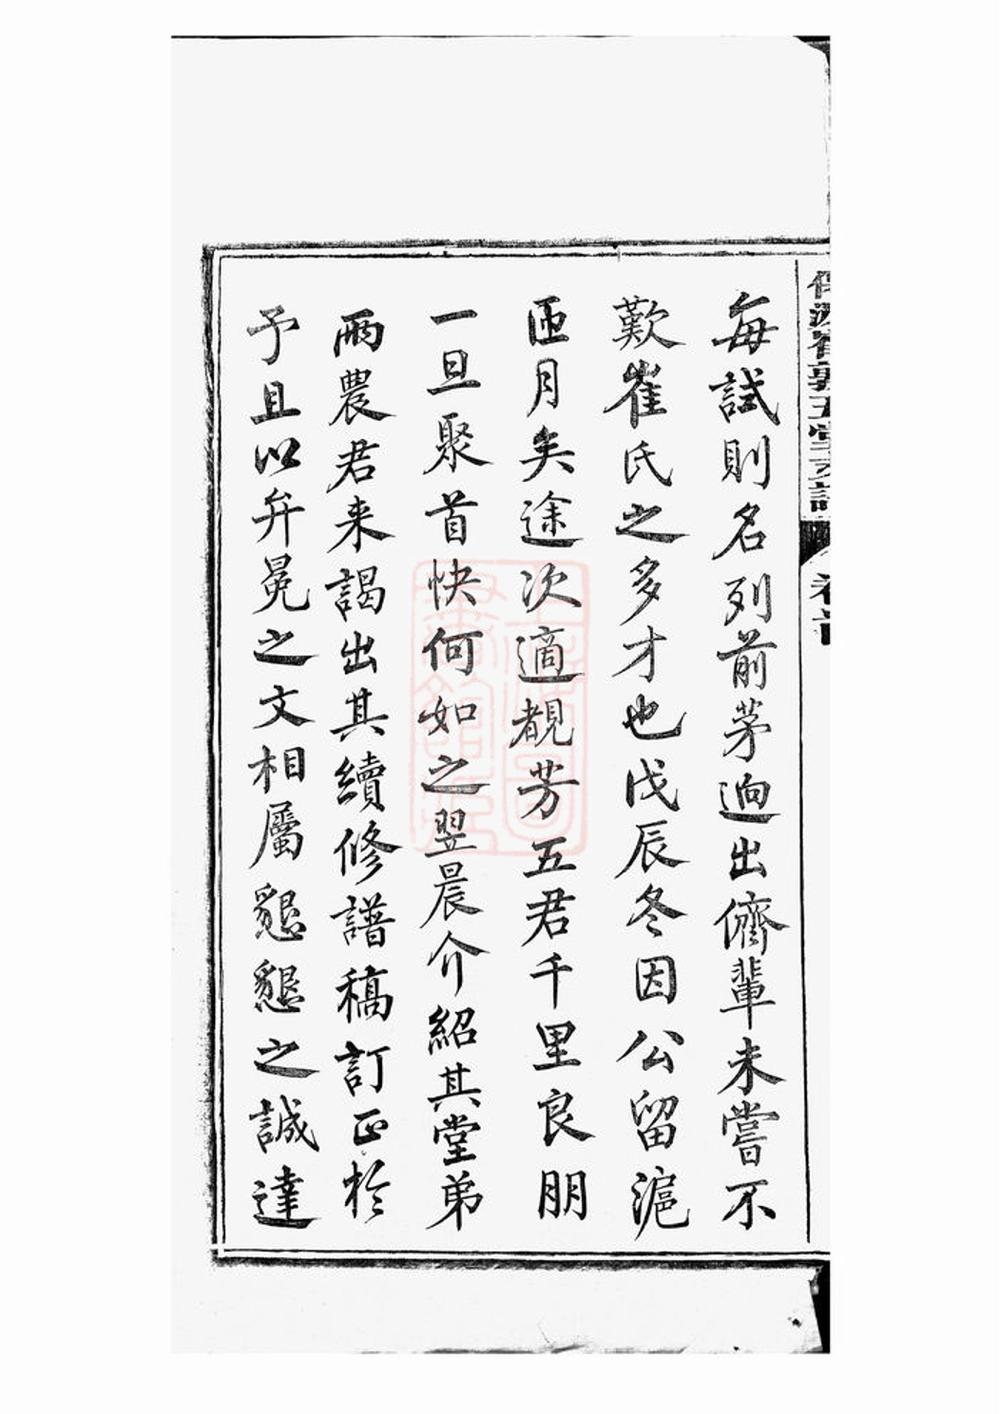 每試則名列前茅迥出儕輩未嘗不
歎崔氏之多才也戊辰冬因公留滬
匝月矣途次適覩芳五君千里良朋
一旦聚首快何如之翌晨介紹其堂弟
兩農君来謁出其續修譜稿訂正於
予且以弁冕之文相屬懇懇之誠達